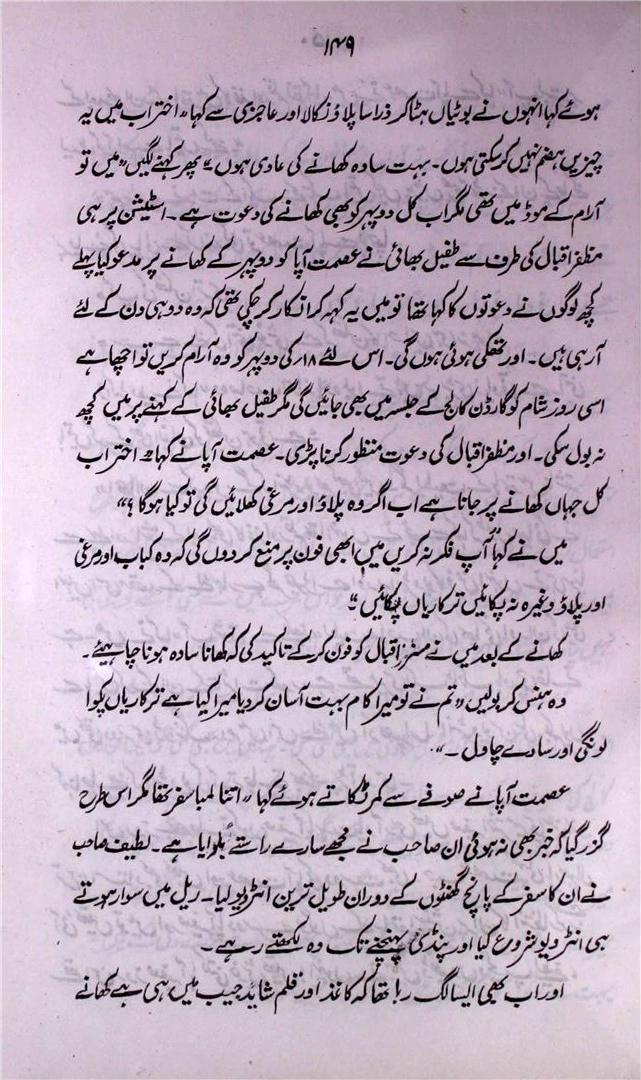 ۱۴۹
ہوئے کہا انہوں نے بوٹیاں ہٹا کر ذرا سا پلاؤ نکالا اور عاجزی سے کہا "اختر اب میں یہ
چیزیں ہضم نہیں کر سکتی ہوں۔ بہت سادہ کھانے کی عادی ہوں" پھر کہنے لگیں "میں تو
آرام کے موڈ میں تھی مگر اب کل دوپہر کو بھی کھانے کی دعوت ہے۔ اسٹیشن پر ہی
مظفر اقبال کی طرف سے طفیل بھائی نے عصمت آپا کو دوپہر کے کھانے پر مدعو کیا پہلے
کچھ لوگوں نے دعوتوں کا کہا تھا تو میں یہ کہہ کر انکار کر چکی تھی کہ وہ دو ہی دن کے لئے
آ رہی ہیں۔ اور تھکی ہوئی ہوں گی۔ اس لئے ۱۸ر کی دوپہر کو وہ آرام کریں تو اچھا ہے
اسی روز شام کو گارڈن کالج کے جلسہ میں بھی جائیں گی مگر طفیل بھائی کے کہنے پر میں کچھ
نہ بول سکی۔ اور مظفر اقبال کی دعوت منظور کرنا پڑی۔ عصمت آپا نے کہا "اختر اب
کل جہاں کھانے پر جانا ہے اب اگر وہ پلاؤ اور مرغی کھلائیں گی تو کیا ہوگا ؟"
میں نے کہا "آپ فکر نہ کریں میں ابھی فون پر منع کر دوں گی کہ وہ کباب اور مرغی
اور پلاؤ وغیرہ نہ پکائیں ترکاریاں پکائیں"
کھانے کے بعد میں نے مسز اقبال کو فون کر کے تاکید کی کہ کھانا سادہ ہونا چاہیئے۔
وہ ہنس کر بولیں "تم نے تو میرا کام بہت آسان کر دیا میرا کیا ہے ترکاریاں پکوا
لونگی اور سادے چاول۔"
عصمت آپا نے صوفے سے کمر ٹکاتے ہوئے کہا "اتنا لمبا سفر تھا مگر اس طرح
گزر گیا کہ خبر بھی نہ ہوئی ان صاحب نے مجھے سارے راستے بلوایا ہے۔ لطیف صاحب
نے ان کا سفر کے پانچ گھنٹوں کے دوران طویل ترین انٹرویو لیا۔ ریل میں سوار ہوتے
ہی انٹرویو شروع کیا اور پنڈی پہنچنے تک وہ لکھتے رہے۔
اور اب بھی ایسا لگ رہا تھا کہ کاغذ اور قلم شاید جیب میں ہی ہے کھانے